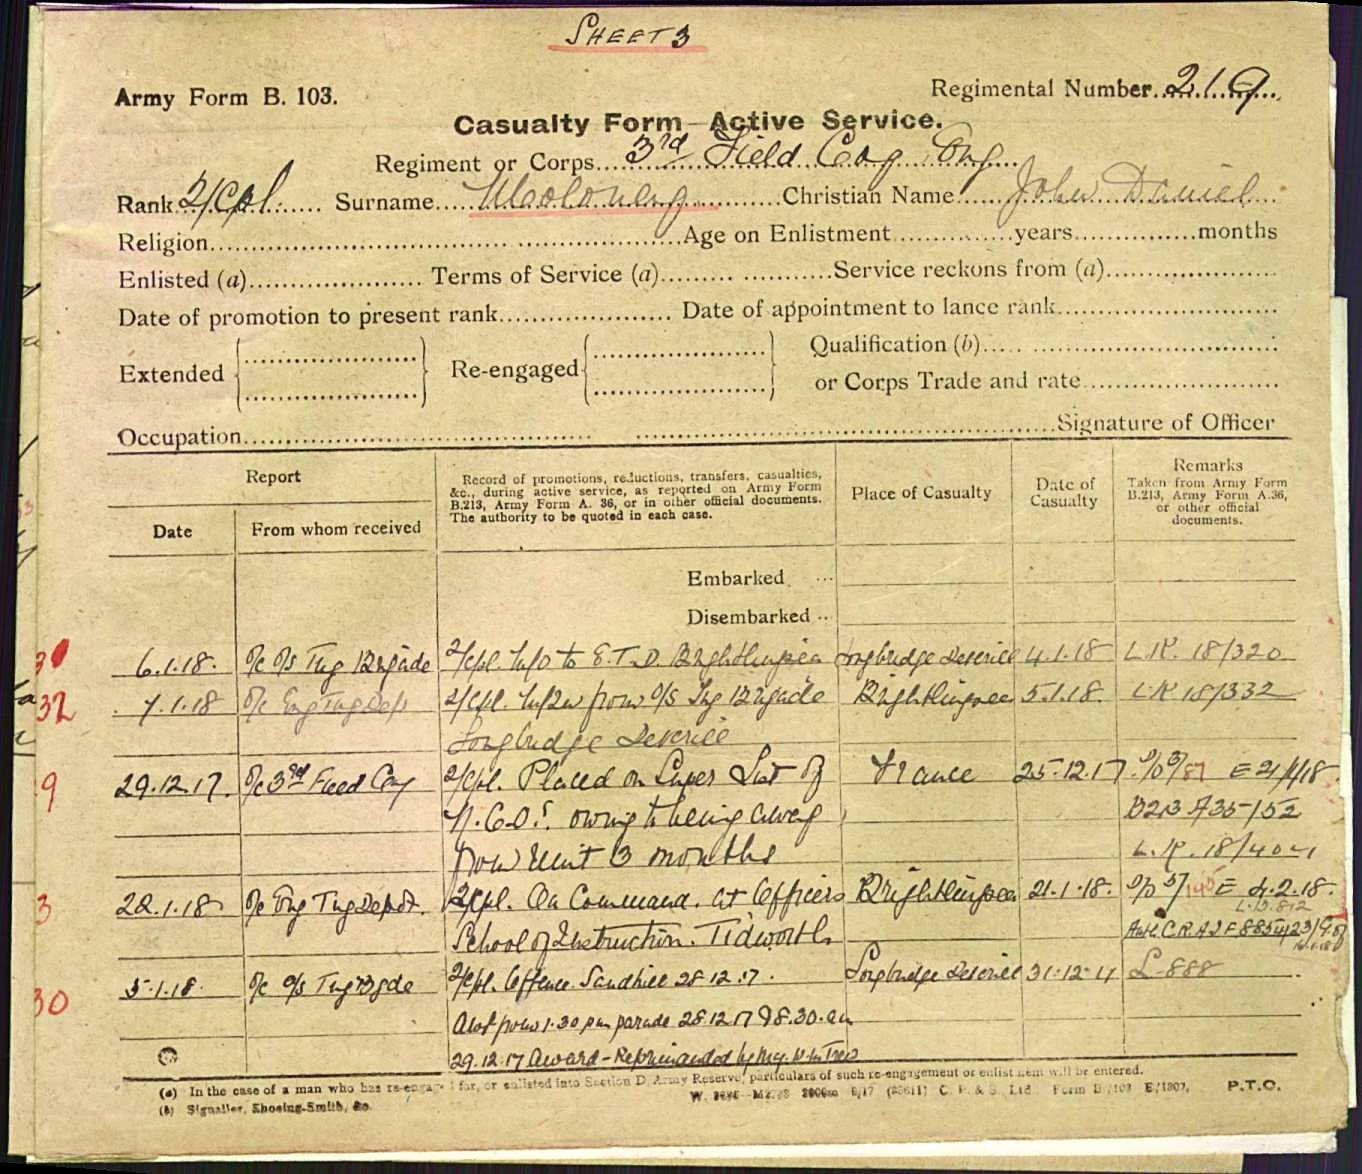 SHEET 3
Army Form B. 103.
Regimental Number 219
Casualty Form—Active Service.
Regiment or Corps 3rd Field Coy Eng
Rank 2/Cpl. Surname Moloney Christian Name John Daniel
Religion Age on Enlistment years months
Enlisted (a) Terms of Service (a) Service reckons from (a)
Date of promotion to present rank Date of appointment to lance rank
Extended Re-engaged Qualification (b)
or Corps Trade and rate
Occupation Signature of Officer
Report
Date
From whom received
Record of promotions, reductions, transfers, casualties,
&c., during active service, as reported on Army Form
B.213, Army Form A. 36, or in other official documents.
The authority to be quoted in each case.
Place of Casualty
Date of
Casualty
Remarks
Taken from Army Form
B.213, Army Form A.36,
or other official
documents.
Embarked
Disembarked
6.1.18. O/C O/S Tng Brigade 2/Cpl. M/O to E.T.D. Brightlingsea Longbridge Deverill 4.1.18 L.R. 18/320
32 7.1.18 O/C Eng Tng Dep 2/Cpl. M/In from O/S Tng Brigade Brightlingsea 5.1.18. L.R 18/332
Longbridge Deverill
9 29.12.17. O/C 3rd Field Coy 2/Cpl. Placed on Super List of France 25.12.17 E 21/1/18
N.C.O's. owing to being away B213 A35-152
from Unit 3 months L.R. 18/404
3 22.1.18 O/C Eng Tng Depot. 2/Cpl. On Command. at Officers Brightlingsea 21.1.18. E 4.2.18.
School of Instruction. Tidworth
30 5.1.18. O/C O/S Tng Bgde 2/Cpl. Offence Sandhill 28.12.17. Longbridge Deverill 31.12.17 L.888
Abst from 1.30 pm parade 28.12.17 8.30. am
29.12.17 Award - Reprimanded by
(a) In the case of a man who has re-engaged for, or enlisted into Section D, Army Reserve, particulars of such re-engagement or enlistment will be entered.
(b) Signaller, Shoeing-Smith, &c.
P.T.O.